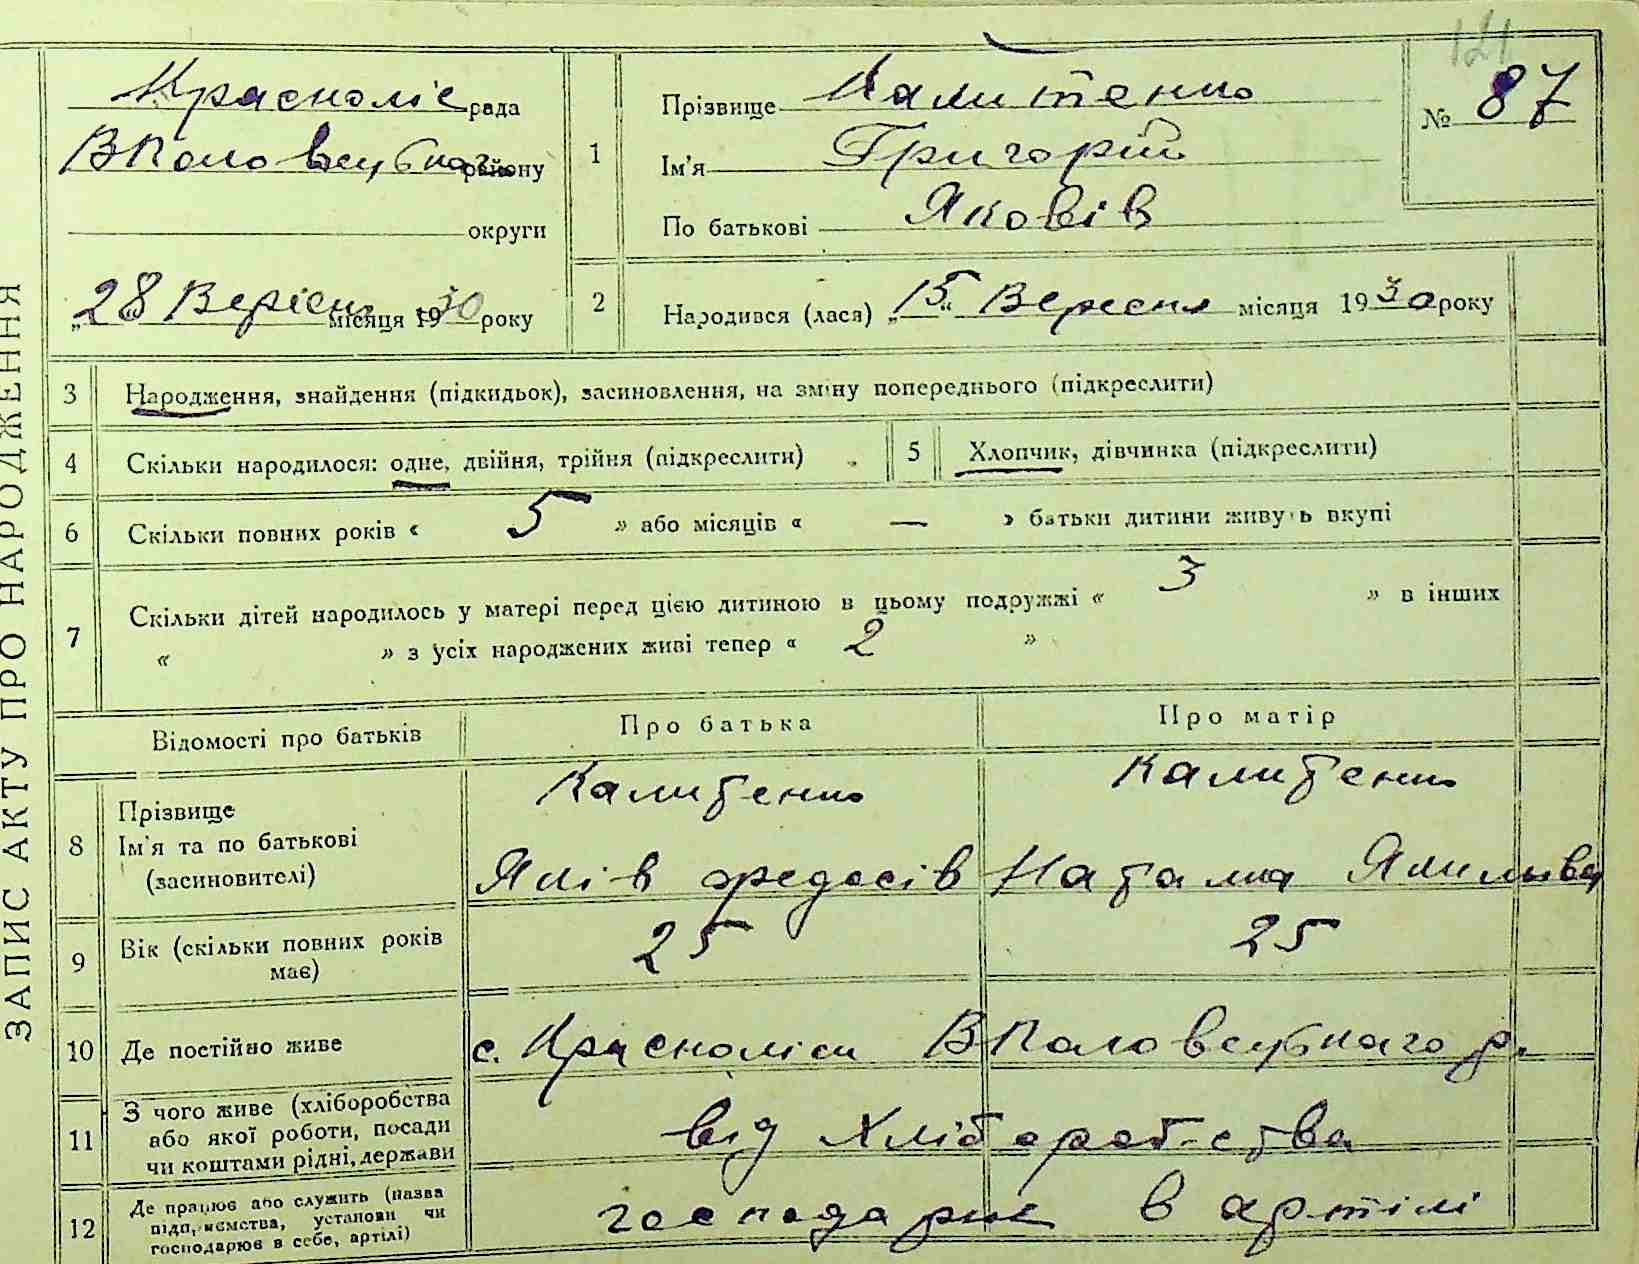 121
Красноліс рада
ВПоловецького району
округи
„28" Вересня місяця 1930 року
1
Прізвище Калитенко
Ім'я Григорій
По батькові Яковів
№ 87
2
Народився (лася) „15" Вересня місяця 1930 року
ЗАПИС АКТУ ПРО НАРОДЖЕННЯ
3 Народження, знайдення (підкидьок), засиновлення, на зміну попереднього (підкреслити)
4 Скільки народилося: одне, двійня, трійня (підкреслити)
5 Хлопчик, дівчинка (підкреслити)
6 Скільки повних років « 5 » або місяців « — » батьки дитини живуть вкупі
7 Скільки дітей народилось у матері перед цією дитиною в цьому подружжі « 3 » в інших
« » з усіх народжених живі тепер « 2 »
Відомості про батьків Про батька Про матір
8
Прізвище
Ім'я та по батькові
(засиновителі)
Калитенко
Яків Федосів
Калитенко
Наталка
9
Вік (скільки повних років
має)
25 25
10 Де постійно живе с. Красноліси ВПоловецького р.
11
З чого живе (хліборобства
або якої роботи, посади
чи коштами рідні, держави
від хліборобства
12
Де працює або служить (назва
підприємства, установи чи
господарює в себе, артілі)
господарює в артілі